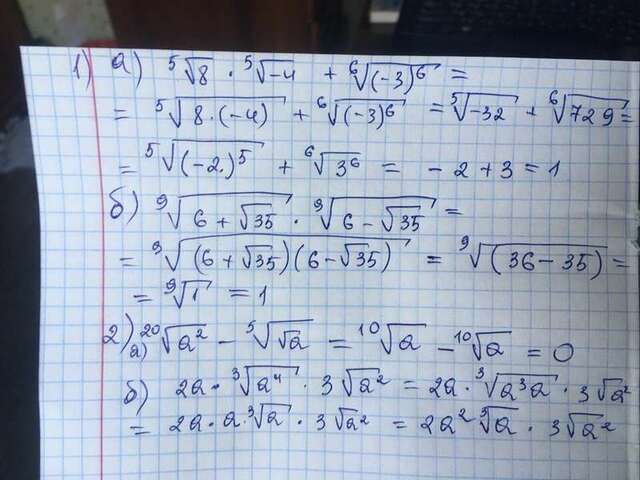 1) а) ⁵√8 · ⁵√-4 + ⁶√(-3)⁶ =
= ⁵√8·(-4) + ⁶√(-3)⁶ = ⁵√-32 + ⁶√729 =
= ⁵√(-2)⁵ + ⁶√3⁶ = -2 + 3 = 1
б) ⁹√6 + √35 · ⁹√6 - √35 =
= ⁹√(6 + √35)(6 - √35) = ⁹√(36 - 35) =
= ⁹√1 = 1
2) а) ²⁰√a² - ⁵√√a = ¹⁰√a - ¹⁰√a = 0
б) 2a · ³√a⁴ · 3√a² = 2a · ³√a³a · 3√a²
= 2a · a · ³√a · 3√a² = 2a² ³√a · 3√a²